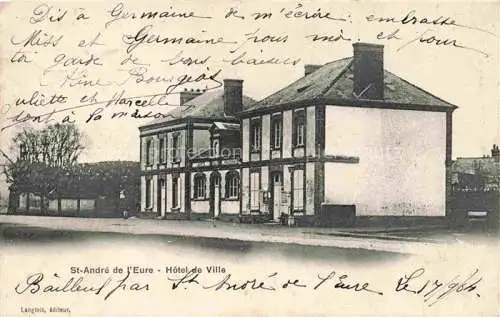 Dis à Germaine de m'écrire, embrasse
Miss et Germaine pour moi, et pour
ta garde de bons baisers
Bourgeois
Juliette et Marcelle
dont à
sa maison
St-André de l'Eure - Hôtel de Ville
Bailleul par St André de l'Eure
Langlois, éditeur.